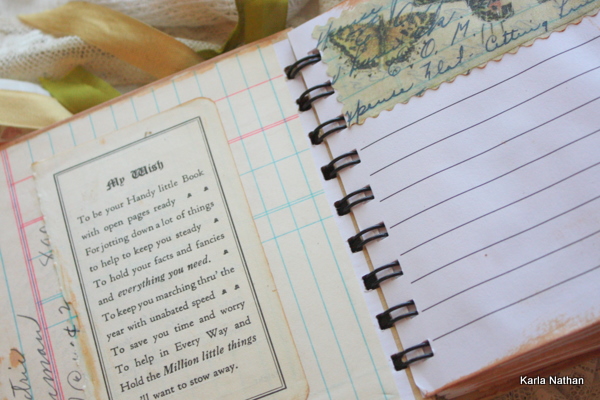 My Wish
To be your Handy little Book
with open pages ready ▲ ▲
For jotting down a lot of things
to help to keep you steady ▲
To hold your facts and fancies
and everything you need. ▲
To keep you marching thru' the
year with unabated speed ▲ ▲
To save you time and worry
To help in Every Way and
Hold the Million little things
'll want to stow away.
Karla Nathan